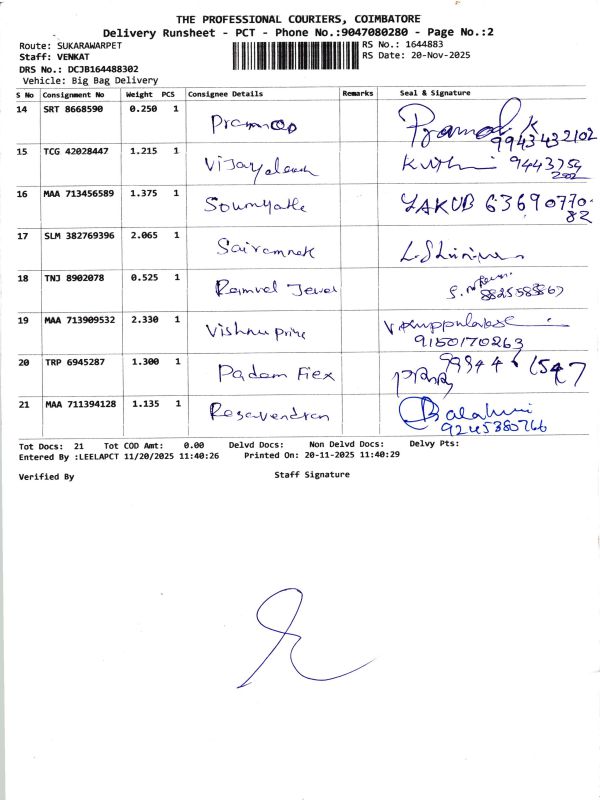 THE PROFESSIONAL COURIERS, COIMBATORE
Delivery Runsheet - PCT - Phone No.:9047080280 - Page No.:2
Route: SUKARAWARPET
RS No.: 1644883
Staff: VENKAT
RS Date: 20-Nov-2025
DRS No.: DCJB164488302
Vehicle: Big Bag Delivery
S No Consignment No Weight PCS Consignee Details Remarks Seal & Signature
14 SRT 8668590 0.250 1 Pramod K
9943432102
15 TCG 42028447 1.215 1 9443754
16 MAA 713456589 1.375 1 YAKUB 63690770
82
17 SLM 382769396 2.065 1
18 TNJ 8902078 0.525 1
19 MAA 713909532 2.330 1 Vishnu
9150170263
20 TRP 6945287 1.300 1 Padam Fiex
21 MAA 711394128 1.135 1
9245380766
Tot Docs: 21 Tot COD Amt: 0.00 Delvd Docs: Non Delvd Docs: Delvy Pts:
Entered By :LEELAPCT 11/20/2025 11:40:26 Printed On: 20-11-2025 11:40:29
Verified By Staff Signature